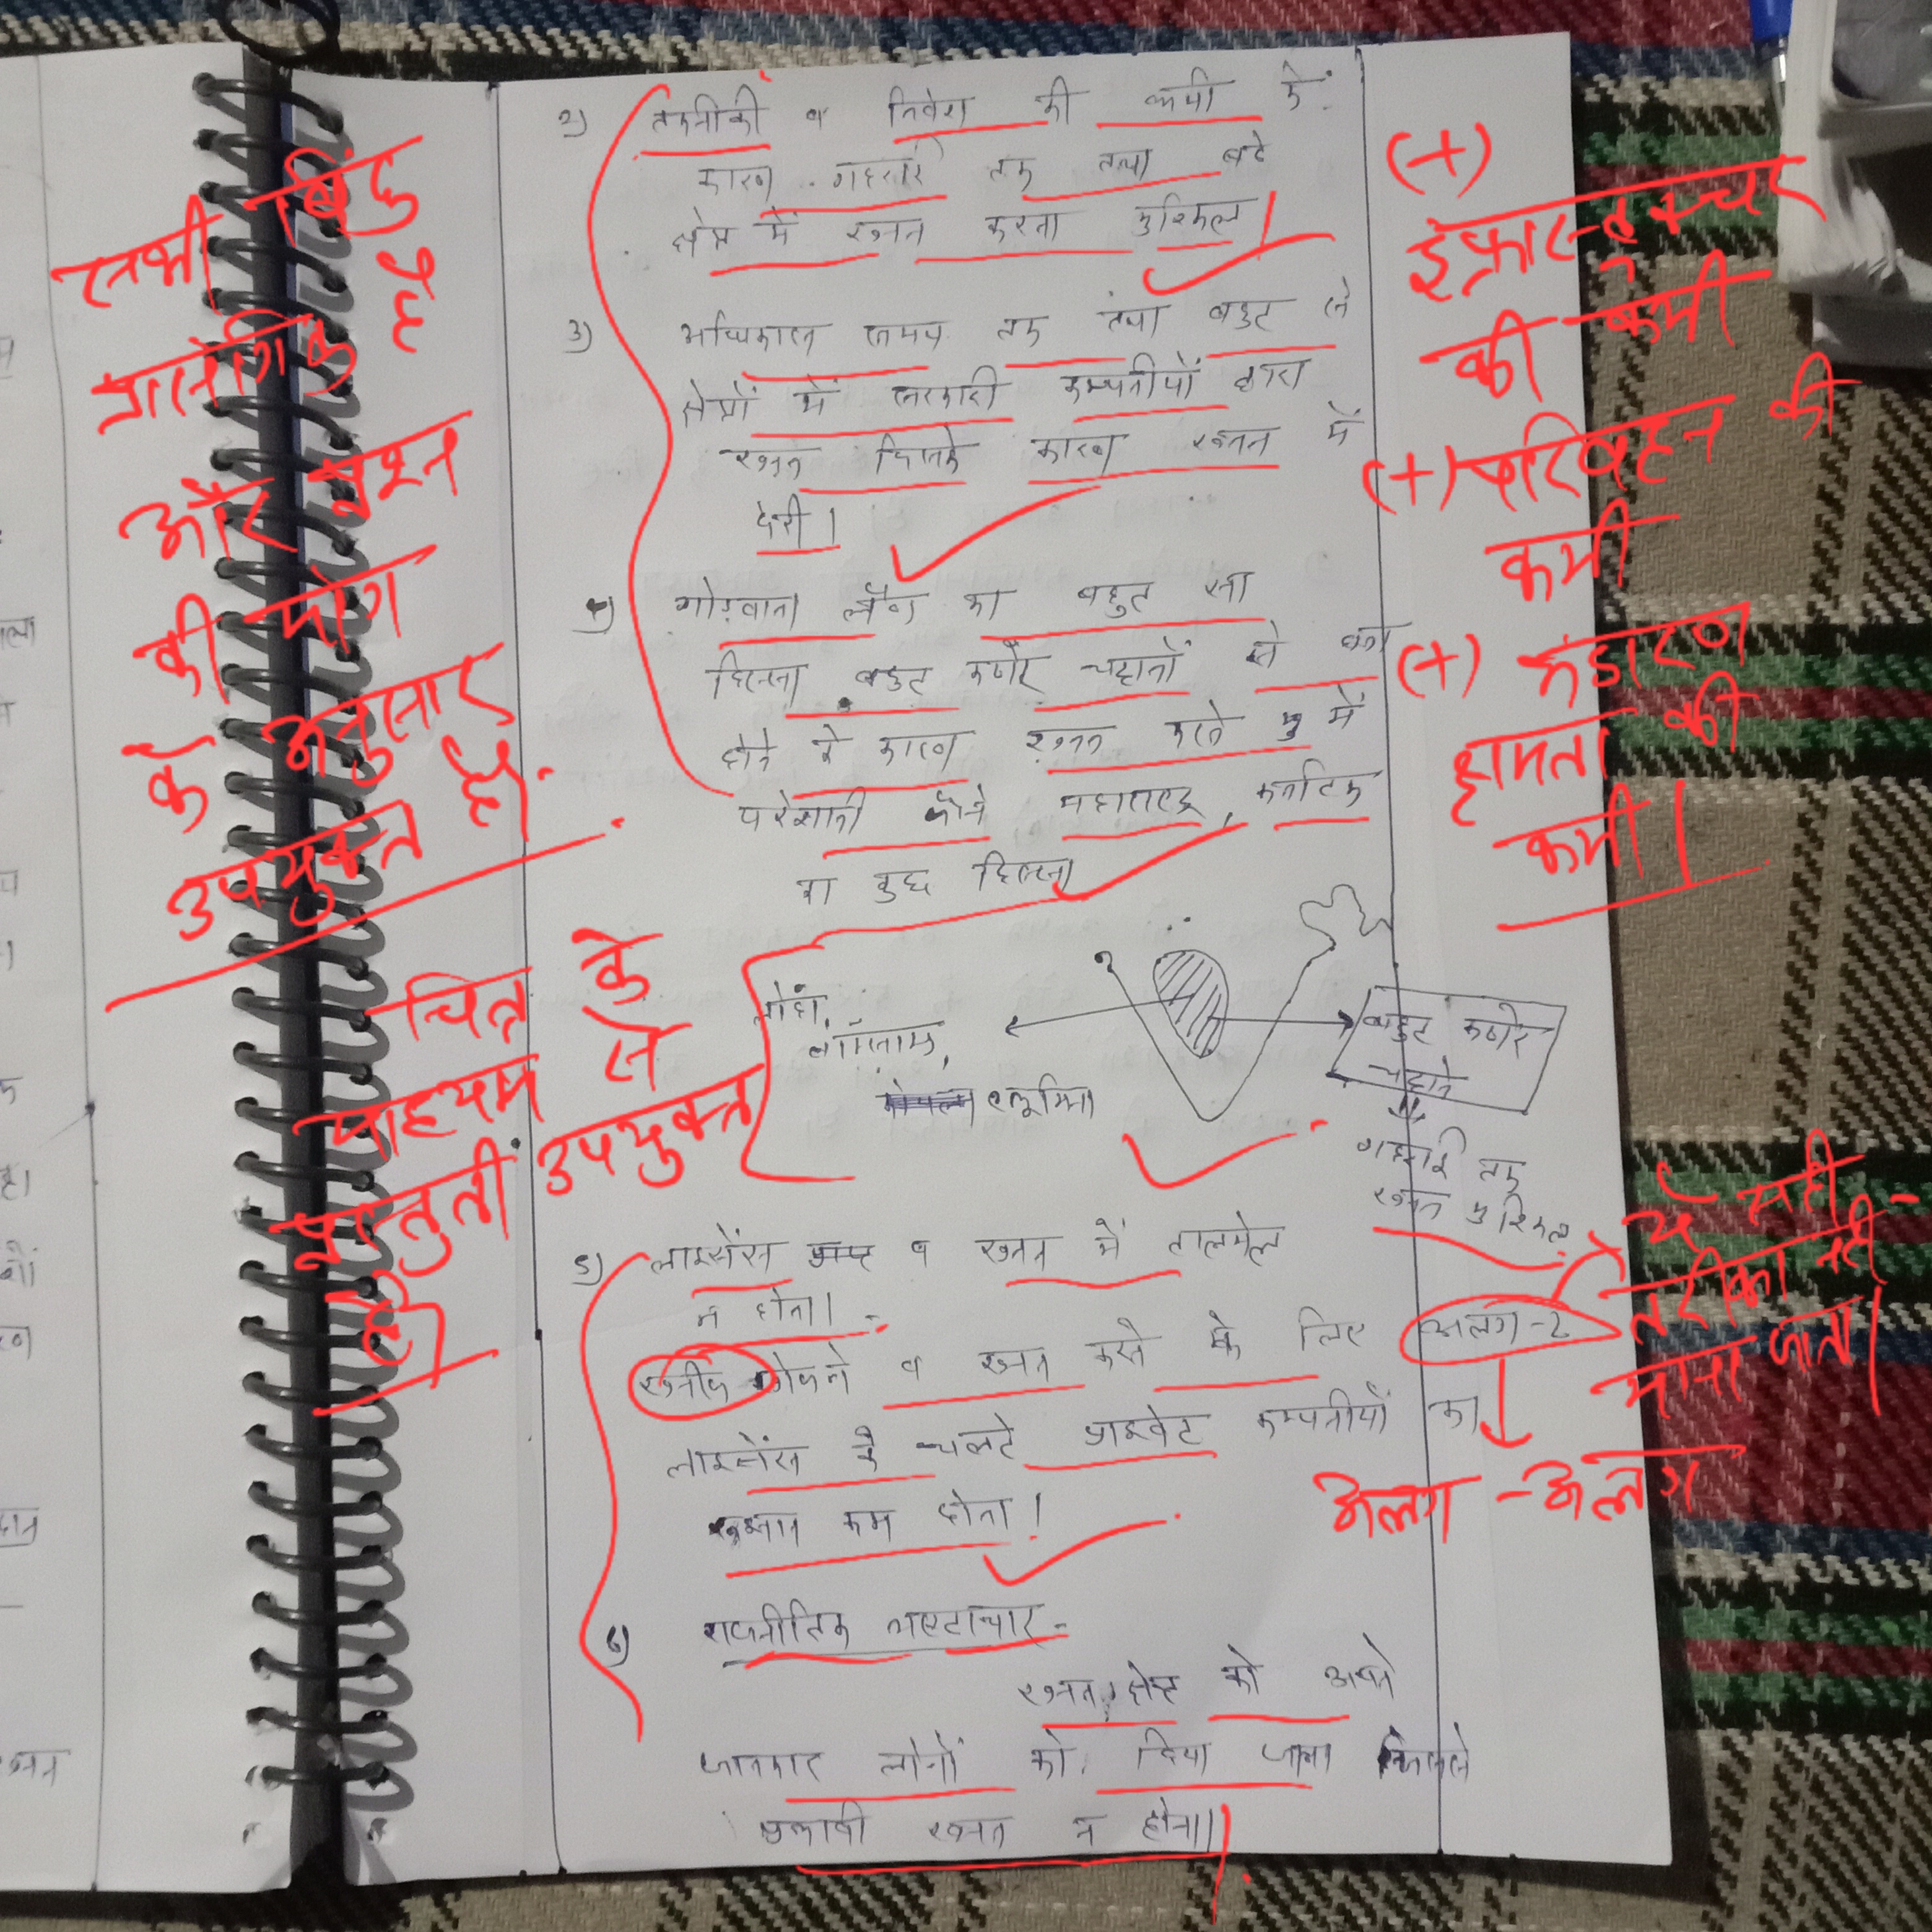 2) तकनीकी व निवेश की कमी के
कारण गहराई तक तथा बडे
क्षेत्र में खनन करना मुश्किल।
3) अधिकांश समय तक तथा बहुत से
क्षेत्रों में सरकारी कम्पनीयों द्वारा
खनन जिसके कारण खनन में
देरी।
4) गोंडवाना लैंड का बहुत सा
हिस्सा बहुत कठोर चट्टानों से बना
होने के कारण खनन करने में
परेशानी जैसे महाराष्ट्र, कर्नाटक
का कुछ हिस्सा
लोहा,
एलुमिना
बहुत कठोर
चट्टाने
गहराई तक
खनन मुश्किल
5) लाइसेंस व खनन में तालमेल
न होना।
खनीज खोजने व खनन करने के लिए अलग-2
लाइसेंस के चलते प्राइवेट कम्पनीयों का
रुझान कम होना।
6) राजनीतिक भ्रष्टाचार-
खनन क्षेत्र को अपने
जानकार लोगों को दिया जाना जिससे
प्रभावी खनन न होना।
सभी बिंदु
प्रासंगिक है
और प्रश्न
की मांग
के अनुसार
उपयुक्त है।
चित्र के
माध्यम से
प्रस्तुती उपयुक्त
है।
(+)
इंफ्रास्ट्रक्चर
की कमी
(+) परिवहन की
कमी
(+) भंडारण
क्षमता की
कमी।
ये सही
तरीका नहीं
माना जाता।
अलग-अलग